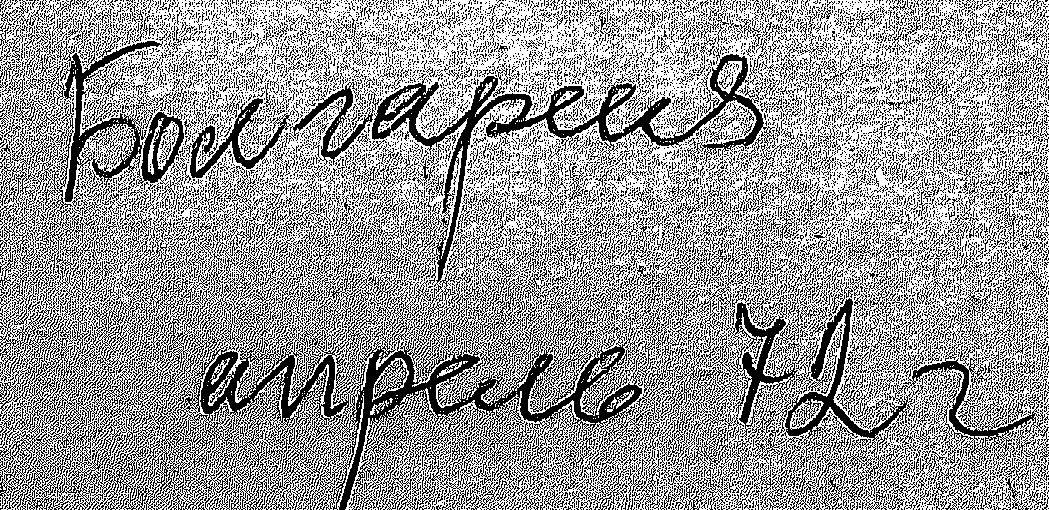 Болгария
апрель 72 г